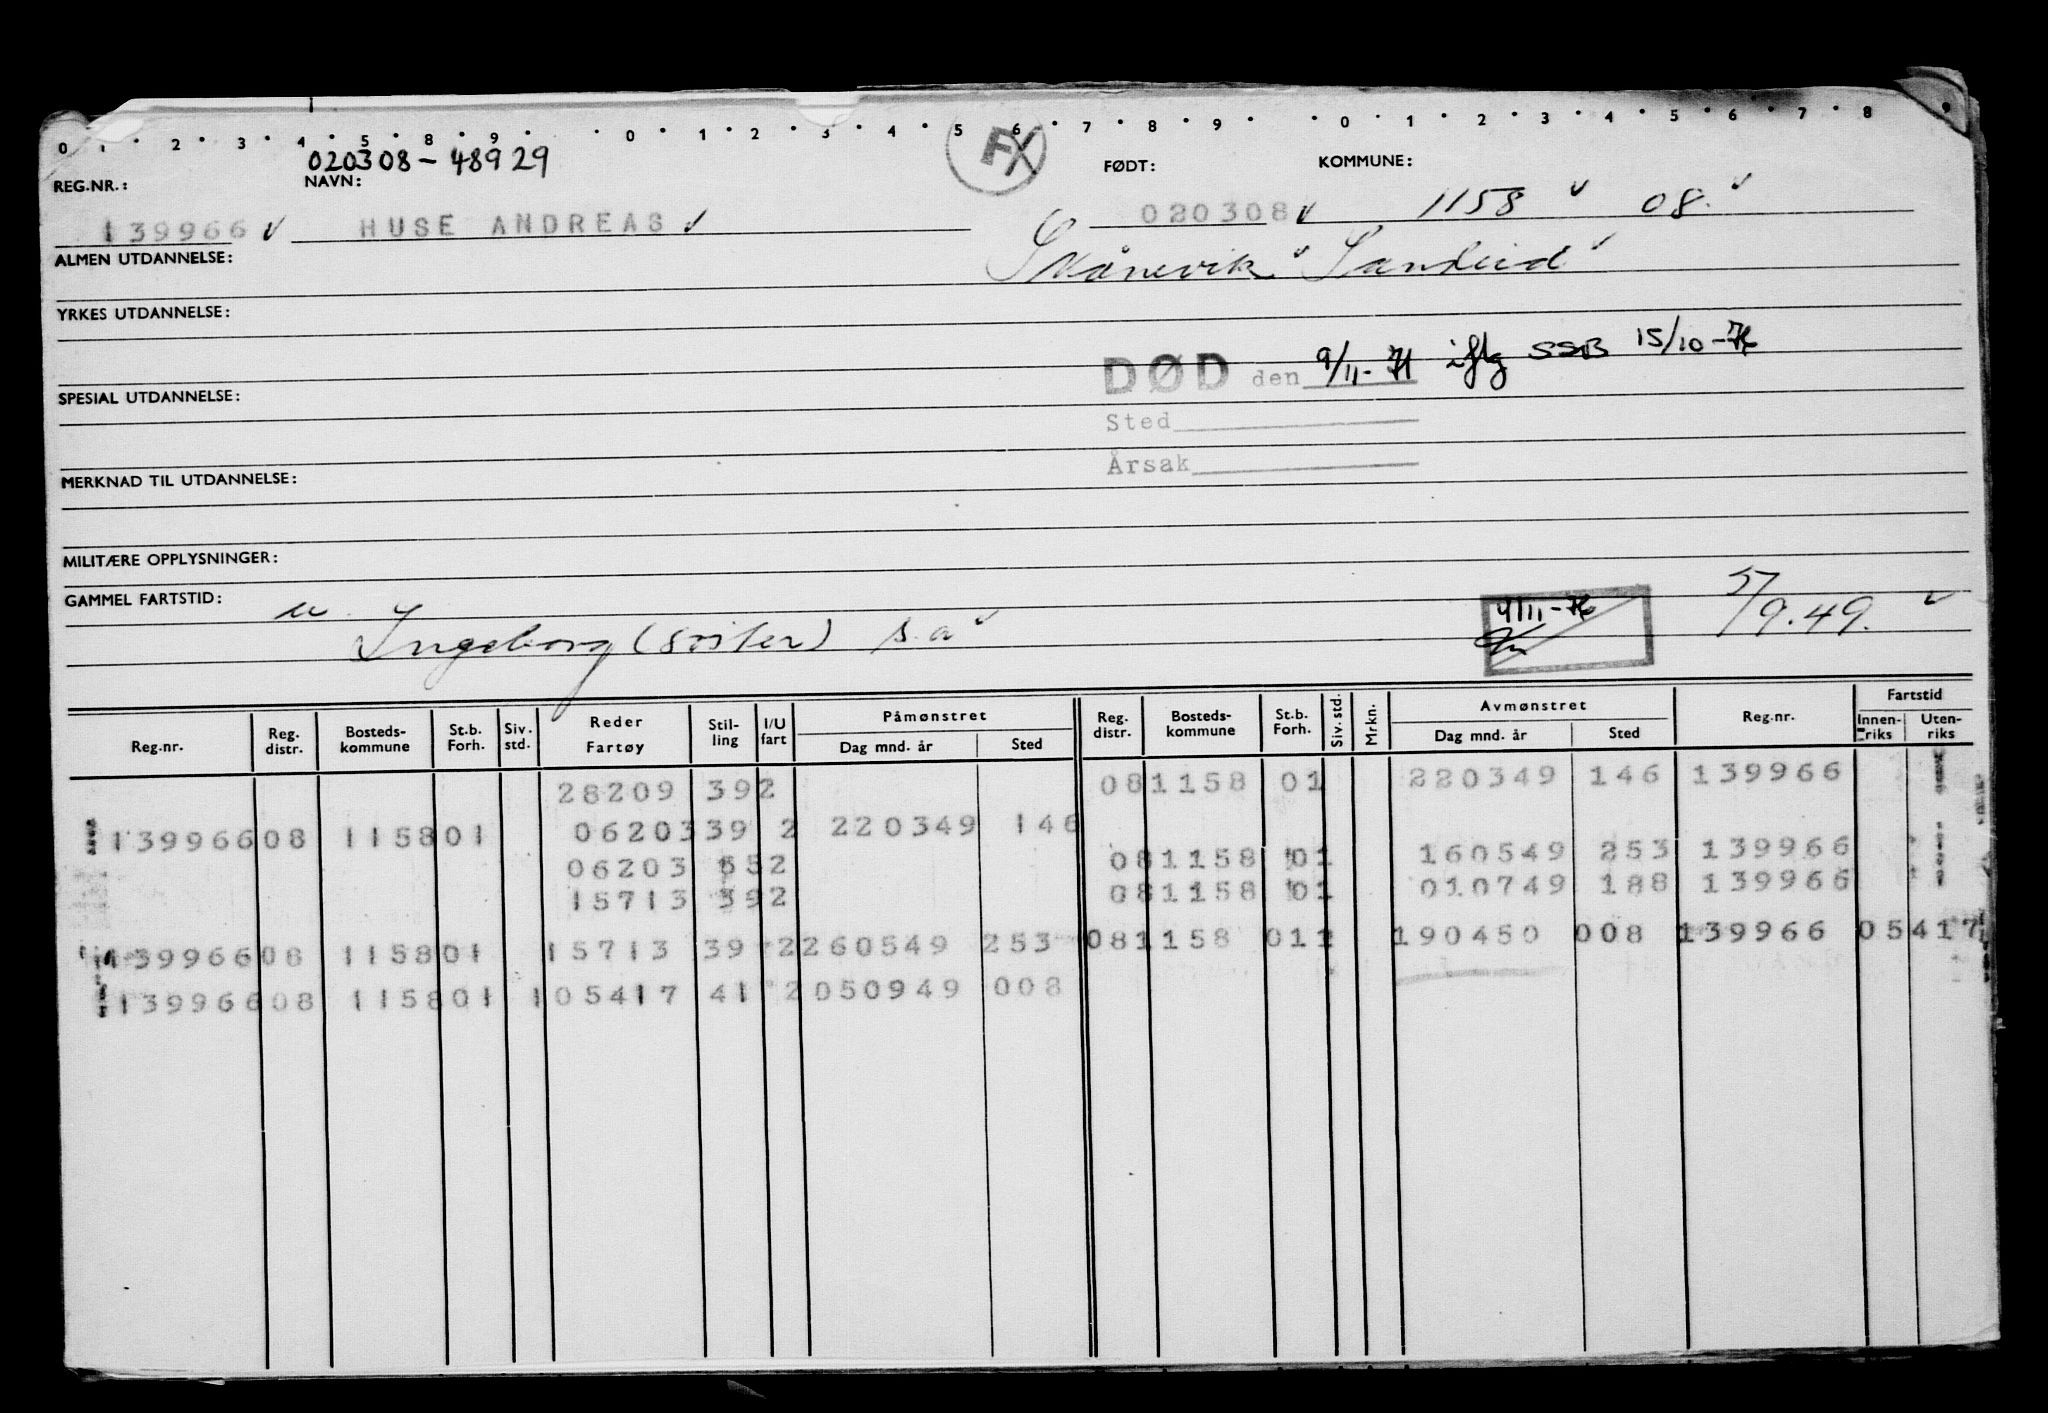 0 1 2 3 4 5 8 9 0 1 2 3 4 5 6 7 8 9 0 1 2 3 4 5 6 7 8 9
020308-48929
FX
REG.NR.: NAVN: FØDT: KOMMUNE:
139966 HUSE ANDREAS 020308 1158 08.
ALMEN UTDANNELSE: Skånevik
YRKES UTDANNELSE:
DØD den 9/11-71 iflg SSB 15/10-76
SPESIAL UTDANNELSE:
Sted
Årsak
MERKNAD TIL UTDANNELSE:
MILITÆRE OPPLYSNINGER:
GAMMEL FARTSTID: u 4/11-76 5/9.49.
Ingeborg (søster) s.a
Reg.nr. Reg. distr. Bosteds-kommune St.b. Forh. Siv. std. Reder Fartøy Stil-ling I/U fart Påmønstret Dag mnd. år Sted Reg. distr. Bosteds-kommune St.b. Forh. Siv. std. Mrkn. Avmønstret Dag mnd. år Sted Reg.nr. Fartstid Innen-riks Uten-riks
28209 39 2 08 1158 01 220349 146 139966
139966 08 1158 01 06203 39 2 220349 146
06203 552 08 1158 01 160549 253 139966
15713 392 08 1158 01 010749 188 139966
139966 08 1158 01 15713 39 2 260549 253 08 1158 01 1 190450 008 139966 05417
139966 08 1158 01 1 05417 41 2 050949 008